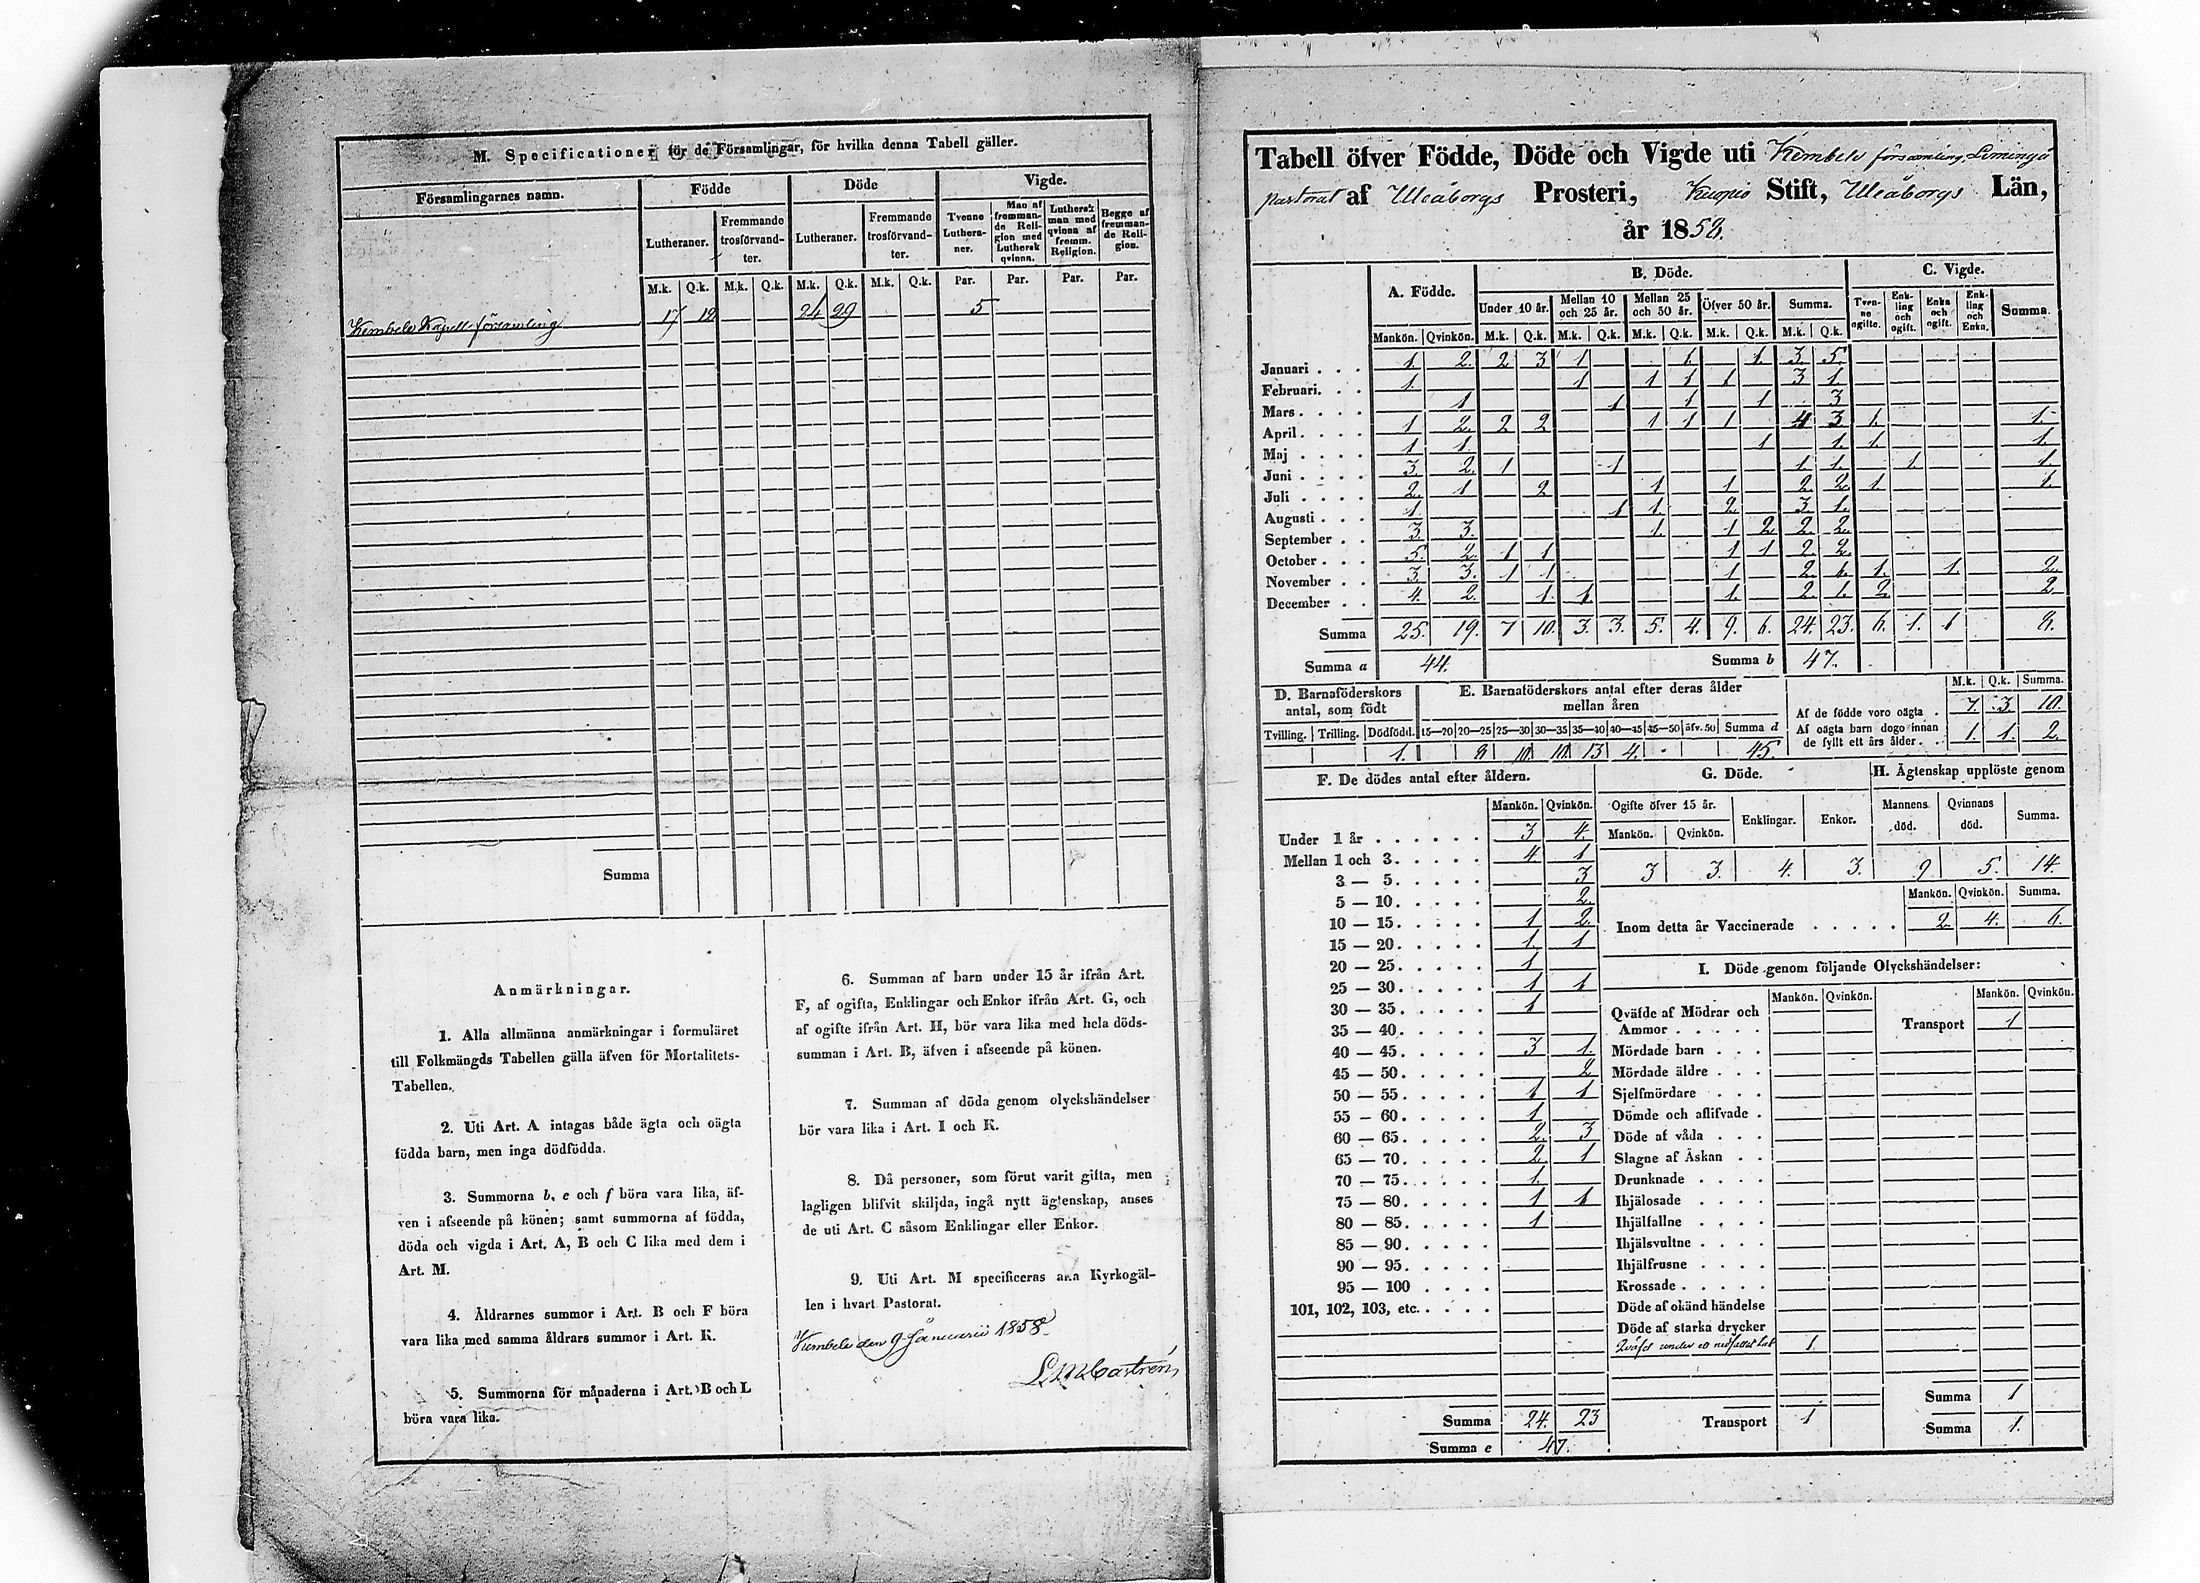 M. Specificationer för de Församlingar, för hvilka denna Tabell gäller.
Församlingarnes namn. Födde Döde Vigde.
Lutheraner. Fremmande trosförvandter. Lutheraner. Fremmande trosförvandter. Tvenne Lutheraner. Man af fremmande Religion med Luthersk qvinna. Luthersk man med qvinna af fremm. Religion. Begge af fremmande Religion.
M.k. Q.k. M.k. Q.k. M.k. Q.k. M.k. Q.k. Par. Par. Par. Par.
Kembele Kapell församling 17 12 24 29 5
Summa
Anmärkningar.
1. Alla allmänna anmärkningar i formuläret
till Folkmängds Tabellen gälla äfven för Mortalitets-
Tabellen.
2. Uti Art. A intagas både ägta och oägta
födda barn, men inga dödfödda.
3. Summorna b, e och f böra vara lika, äf-
ven i afseende på könen; samt summorna af födda,
döda och vigda i Art. A, B och C lika med dem i
Art. M.
4. Åldrarnes summor i Art. B och F böra
vara lika med samma åldrars summor i Art. K.
5. Summorna för månaderna i Art. B och L
böra vara lika.
6. Summan af barn under 15 år ifrån Art.
F, af ogifta, Enklingar och Enkor ifrån Art. G, och
af ogifte ifrån Art. H, bör vara lika med hela döds-
summan i Art. B, äfven i afseende på könen.
7. Summan af döda genom olyckshändelser
bör vara lika i Art. I och K.
8. Då personer, som förut varit gifta, men
lagligen blifvit skiljda, ingå nytt ägtenskap, anses
de uti Art. C såsom Enklingar eller Enkor.
9. Uti Art. M specificeras alla Kyrkogäl-
len i hvart Pastorat.
Kembele den 9 Januarii 1858.
L M Castrén
Tabell öfver Födde, Döde och Vigde uti Kembele församling, Limingo
pastorat af Uleåborgs Prosteri, Kuopio Stift, Uleåborgs Län,
år 1856.
A. Födde. B. Döde. C. Vigde.
Under 10 år. Mellan 10 och 25 år. Mellan 25 och 50 år. Öfver 50 år. Summa. Tvenne ogifte. Enkling och ogift. Enka och ogift. Enkling och Enka. Summa.
Mankön. Qvinkön. M.k. Q.k. M.k. Q.k. M.k. Q.k. M.k. Q.k. M.k. Q.k.
Januari . . . 1. 2. 2 3 1 1. 1. 3. 5.
Februari. . . 1. 1 1 1 1 3 1.
Mars . . . . 1 1 1 1 3
April . . . . 1 2. 2 2 1 1 1 4 3 1. 1.
Maj . . . . 1 1. 1 1. 1. 1.
Juni . . . . 3. 2. 1 1 1. 1. 1. 1.
Juli . . . . 2. 1 2 1 1. 2 2 1 1.
Augusti . . . 1. 1 1. 2. 3 1.
September . . 3 3. 1. 1 2 2. 2.
October . . . 5. 2. 1 1 1 1 2. 2.
November . . 3. 3. 1 1 1 2. 1. 1. 1. 2.
December . . 4. 2. 1. 1 1. 2. 1. 2 2.
Summa 25. 19. 7 10. 3. 3. 5. 4. 9. 6. 24. 23. 6. 1. 1 8.
Summa a 44. Summa b 47.
D. Barnaföderskors antal, som födt
E. Barnaföderskors antal efter deras ålder mellan åren
M.k. Q.k. Summa.
Af de födde voro oägta . 7. 3. 10.
Af oägta barn dogo innan de fyllt ett års ålder. . 1. 1. 2.
Tvilling. Trilling. Dödfödd. 15—20 20—25 25—30 30—35 35—40 40—45 45—50 öfv. 50 Summa d
1. 8 10. 10. 13 4. 45.
F. De dödes antal efter åldern.
Mankön. Qvinkön.
Under 1 år . . . . . . 3 4.
Mellan 1 och 3. . . . . 4. 1
3 — 5. . . . . 3
5 — 10. . . . . 2.
10 — 15. . . . . 1 2.
15 — 20. . . . . 1. 1
20 — 25. . . . . 1.
25 — 30. . . . . 1 1
30 — 35. . . . . 1
35 — 40. . . . .
40 — 45. . . . . 3 1.
45 — 50. . . . . 2
50 — 55. . . . . 1 1
55 — 60. . . . . 1.
60 — 65. . . . . 2. 3
65 — 70. . . . . 2. 1
70 — 75. . . . . 1.
75 — 80. . . . . 1 1
80 — 85. . . . . 1
85 — 90. . . . .
90 — 95. . . . .
95 — 100 . . . .
101, 102, 103, etc. . . . .
Summa 24. 23
Summa e 47.
G. Döde.
Ogifte öfver 15 år. Enklingar. Enkor.
Mankön. Qvinkön.
3 3. 4. 3.
H. Ägtenskap upplöste genom
Mannens död. Qvinnans död. Summa.
9 5. 14.
Mankön. Qvinkön. Summa.
Inom detta år Vaccinerade . . . . . 2. 4. 6.
I. Döde genom följande Olyckshändelser:
Mankön. Qvinkön. Mankön. Qvinkön.
Qväfde af Mödrar och
Ammor . . . . .
Transport 1
Mördade barn . . .
Mördade äldre . . .
Sjelfmördare . . .
Dömde och aflifvade .
Döde af våda . . .
Slagne af Åskan . .
Drunknade . . . .
Ihjälosade . . . .
Ihjälfallne . . . .
Ihjälsvultne . . . .
Ihjälfrusne . . . .
Krossade . . . . .
Döde af okänd händelse
Döde af starka drycker
Qväfd under 1.
Summa 1
Transport 1
Summa 1.